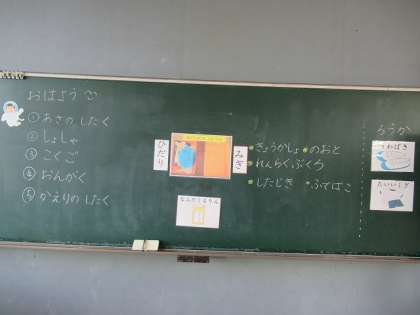 おはよう
① あさの したく
② しょしゃ
③ こくご
④ おんがく
⑤ かえりの したく
ひだり
みぎ
きょうかしょ のおと
れんらくぶくろ
したじき ふでばこ
ろうか
うわばき